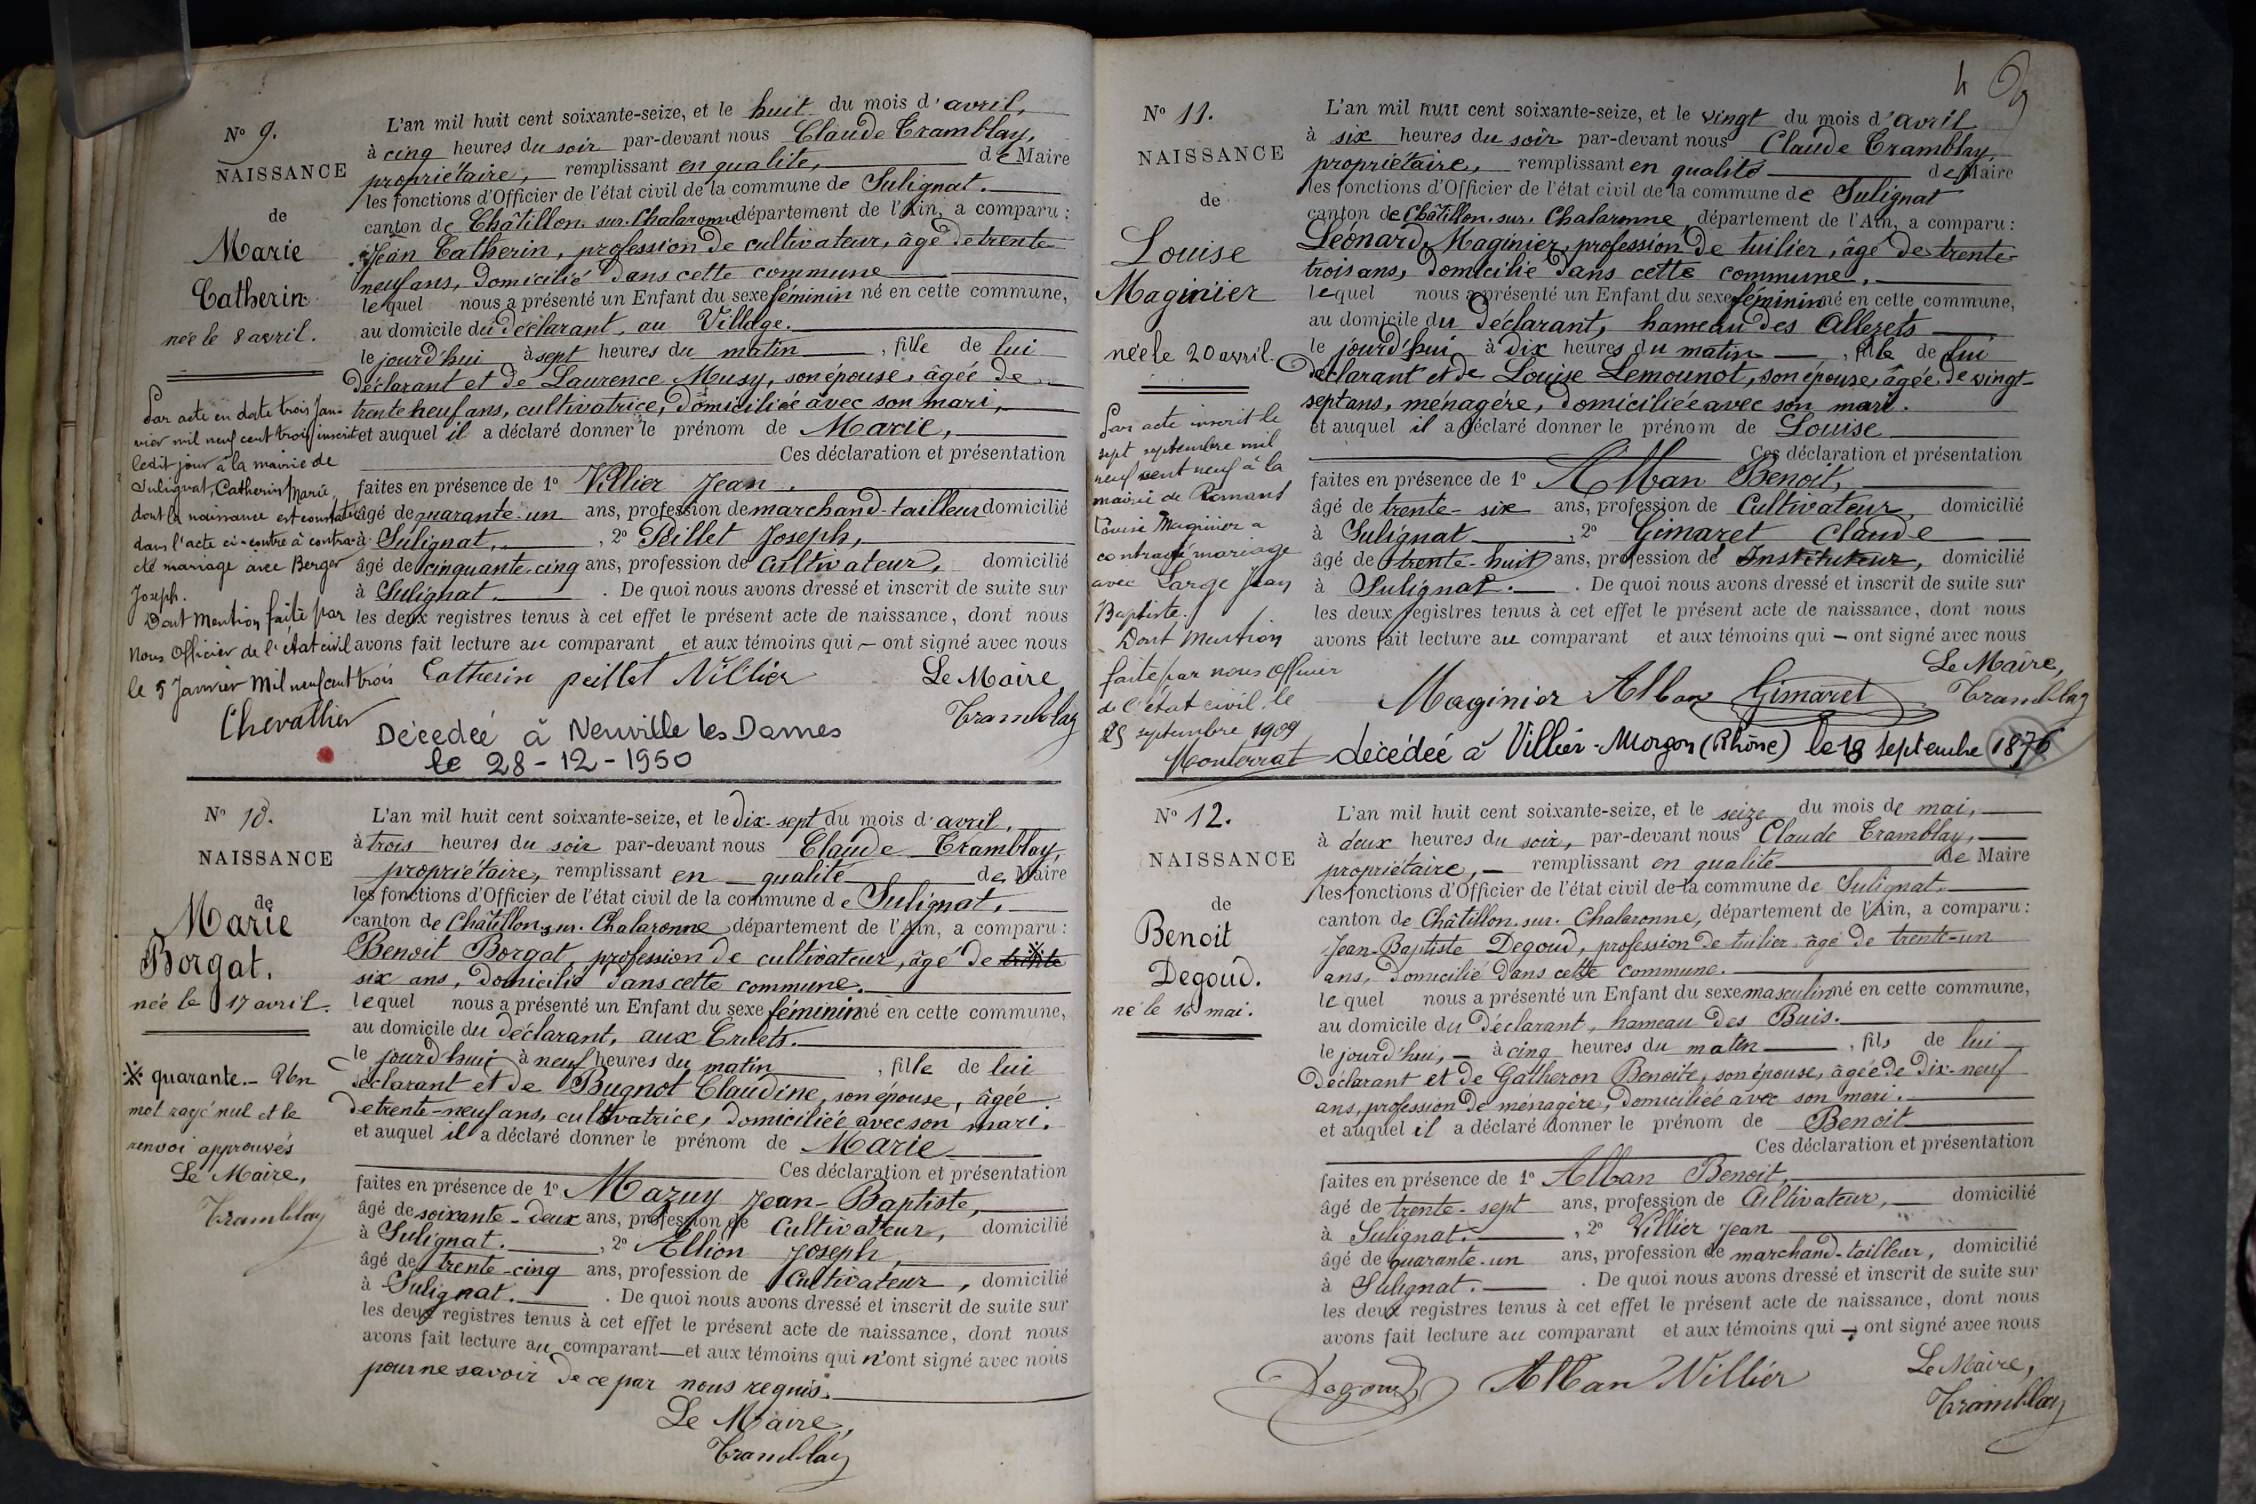 Nº 9.
NAISSANCE
de
Marie
Catherin
née le 8 avril.
Par acte en date trois Jan-
vier mil neuf cent trois inscrit
ledit jour à la mairie de
Sulignat, Catherin Marie,
dont la naissance est constatée
dans l'acte ci-contre à contrac-
té mariage avec Berger
Joseph.
Dont Mention faite par
Nous Officier de l'état civil
le 5 Janvier Mil neuf cent trois
Chevallier
L'an mil huit cent soixante-seize, et le huit du mois d'avril,
à cinq heures du soir par-devant nous Claude Tramblay,
propriétaire, remplissant en qualité, de Maire
les fonctions d'Officier de l'état civil de la commune de Sulignat.
canton de Châtillon. sur. Chalaronne département de l'Ain, a comparu :
Jean Catherin, profession de cultivateur, âgé de trente-
neuf ans, domicilié dans cette commune
lequel nous a présenté un Enfant du sexe féminin né en cette commune,
au domicile du déclarant, au Village.
le jourd'hui à sept heures du matin, fille de lui
déclarant et de Laurence Musy, son épouse, âgée de
trente neuf ans, cultivatrice, domiciliée avec son mari,
et auquel il a déclaré donner le prénom de Marie,
Ces déclaration et présentation
faites en présence de 1º Villier Jean.
âgé de quarante-un ans, profession de marchand-tailleur domicilié
à Sulignat, , 2º Peillet Joseph,
âgé de cinquante-cinq ans, profession de Cultivateur, domicilié
à Sulignat. . De quoi nous avons dressé et inscrit de suite sur
les deux registres tenus à cet effet le présent acte de naissance, dont nous
avons fait lecture au comparant et aux témoins qui – ont signé avec nous
Catherin peillet Villier Le Maire
Tramblay
Décédée à Neuville les Dames
le 28-12-1950
Nº 10.
NAISSANCE
de
Marie
Borgat.
née le 17 avril.
※ quarante. - Un
mot rayé nul et le
renvoi approuvés
Le Maire,
Tramblay
L'an mil huit cent soixante-seize, et le dix-sept du mois d'avril,
à trois heures du soir par-devant nous Claude Tramblay,
propriétaire, remplissant en qualité de Maire
les fonctions d'Officier de l'état civil de la commune de Sulignat,
canton de Châtillon. sur. Chalaronne département de l'Ain, a comparu :
Benoit Borgat, profession de cultivateur, âgé de trente ※
six ans, domicilié dans cette commune.
lequel nous a présenté un Enfant du sexe féminin né en cette commune,
au domicile du déclarant, aux Truets.
le jourd'hui à neuf heures du matin, fille de lui
déclarant et de Bugnot Claudine, son épouse, âgée
de trente-neuf ans, cultivatrice, domiciliée avec son mari.
et auquel il a déclaré donner le prénom de Marie
Ces déclaration et présentation
faites en présence de 1º Mazuy Jean-Baptiste,
âgé de soixante-deux ans, profession de Cultivateur, domicilié
à Sulignat. , 2º Allion Joseph,
âgé de trente-cinq ans, profession de Cultivateur, domicilié
à Sulignat. . De quoi nous avons dressé et inscrit de suite sur
les deux registres tenus à cet effet le présent acte de naissance, dont nous
avons fait lecture au comparant—et aux témoins qui n'ont signé avec nous
pour ne savoir de ce par nous requis.
Le Maire,
Tramblay
4
Nº 11.
NAISSANCE
de
Louise
Maginier
née le 20 avril.
Par acte inscrit le
sept septembre mil
neuf cent neuf à la
mairie de Romans
Louise Maginier a
contracté mariage
avec Large Jean
Baptiste.
Dont Mention
faite par nous Officier
de l'état civil le
25 septembre 1909
Monterrat
L'an mil huit cent soixante-seize, et le vingt du mois d'avril
à six heures du soir par-devant nous Claude Tramblay,
propriétaire, remplissant en qualité de Maire
les fonctions d'Officier de l'état civil de la commune de Sulignat
canton de Châtillon. sur. Chalaronne, département de l'Ain, a comparu :
Léonard Maginier, profession de tuilier, âgé de trente-
trois ans, domicilié dans cette commune.
lequel nous a présenté un Enfant du sexe féminin né en cette commune,
au domicile du déclarant, hameau des Allezets
le jourd'hui à dix heures du matin, fille de lui
déclarant et de Louise Lemounot, son épouse, âgée de vingt-
sept ans, ménagère, domiciliée avec son mari.
et auquel il a déclaré donner le prénom de Louise
Ces déclaration et présentation
faites en présence de 1º Alban Benoit,
âgé de trente-six ans, profession de Cultivateur, domicilié
à Sulignat , 2º Gimaret Claude
âgé de trente-huit ans, profession de Instituteur, domicilié
à Sulignat. . De quoi nous avons dressé et inscrit de suite sur
les deux registres tenus à cet effet le présent acte de naissance, dont nous
avons fait lecture au comparant et aux témoins qui – ont signé avec nous
Le Maire,
Maginier Alban Gimaret Tramblay
décédée à Villié-Morgon (Rhône) le 18 septembre 1876
Nº 12.
NAISSANCE
de
Benoit
Degoud.
né le 16 mai.
L'an mil huit cent soixante-seize, et le seize du mois de mai,
à deux heures du soir, par-devant nous Claude Tramblay,
propriétaire, – remplissant en qualité de Maire
les fonctions d'Officier de l'état civil de la commune de Sulignat.
canton de Châtillon. sur. Chalaronne, département de l'Ain, a comparu :
Jean-Baptiste Degoud, profession de tuilier âgé de trente-un
ans, domicilié dans cette commune.
lequel nous a présenté un Enfant du sexe masculin né en cette commune,
au domicile du déclarant, hameau des Buis.
le jourd'hui, – à cinq heures du matin, fils de lui
déclarant et de Gatheron Benoite, son épouse, âgée de dix-neuf
ans, profession de ménagère, domiciliée avec son mari.
et auquel il a déclaré donner le prénom de Benoit
Ces déclaration et présentation
faites en présence de 1º Alban Benoit,
âgé de trente-sept ans, profession de Cultivateur, domicilié
à Sulignat. , 2º Villier Jean
âgé de quarante-un ans, profession de marchand-tailleur, domicilié
à Sulignat. . De quoi nous avons dressé et inscrit de suite sur
les deux registres tenus à cet effet le présent acte de naissance, dont nous
avons fait lecture au comparant et aux témoins qui – ont signé avec nous
Degoud Alban Villier Le Maire,
Tramblay